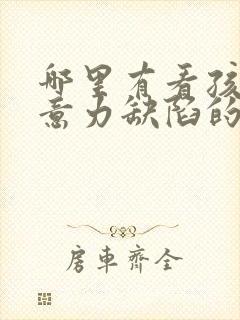 哪里有看孩
意力缺陷的
房車齊全